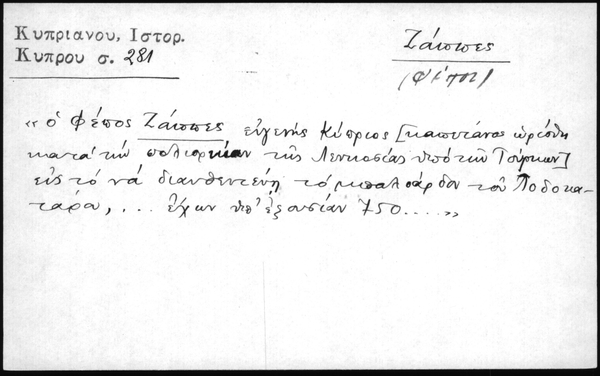 Κυπριανου, Ιστορ.
Κυπρου σ. 281
Ζάππες
(Φέπος)
« ὁ Φέπος Ζάππες εὐγενής Κύπριος [καπετάνος ὡρίσθη
κατά τήν πολιορκίαν τῆς Λευκοσίας ὑπό τῶν Τούρκων]
εἰς τό νά διαυθεντεύῃ τό μπαλοάρδον τοῦ Ποδοκα-
τάρο, ... ἔχων ὑπ' ἐξουσίαν 750 .... »